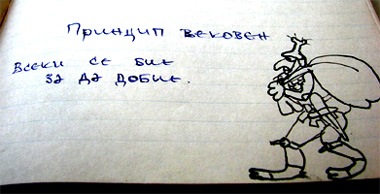 Принцип вековен
Всеки се бие
за да добие.